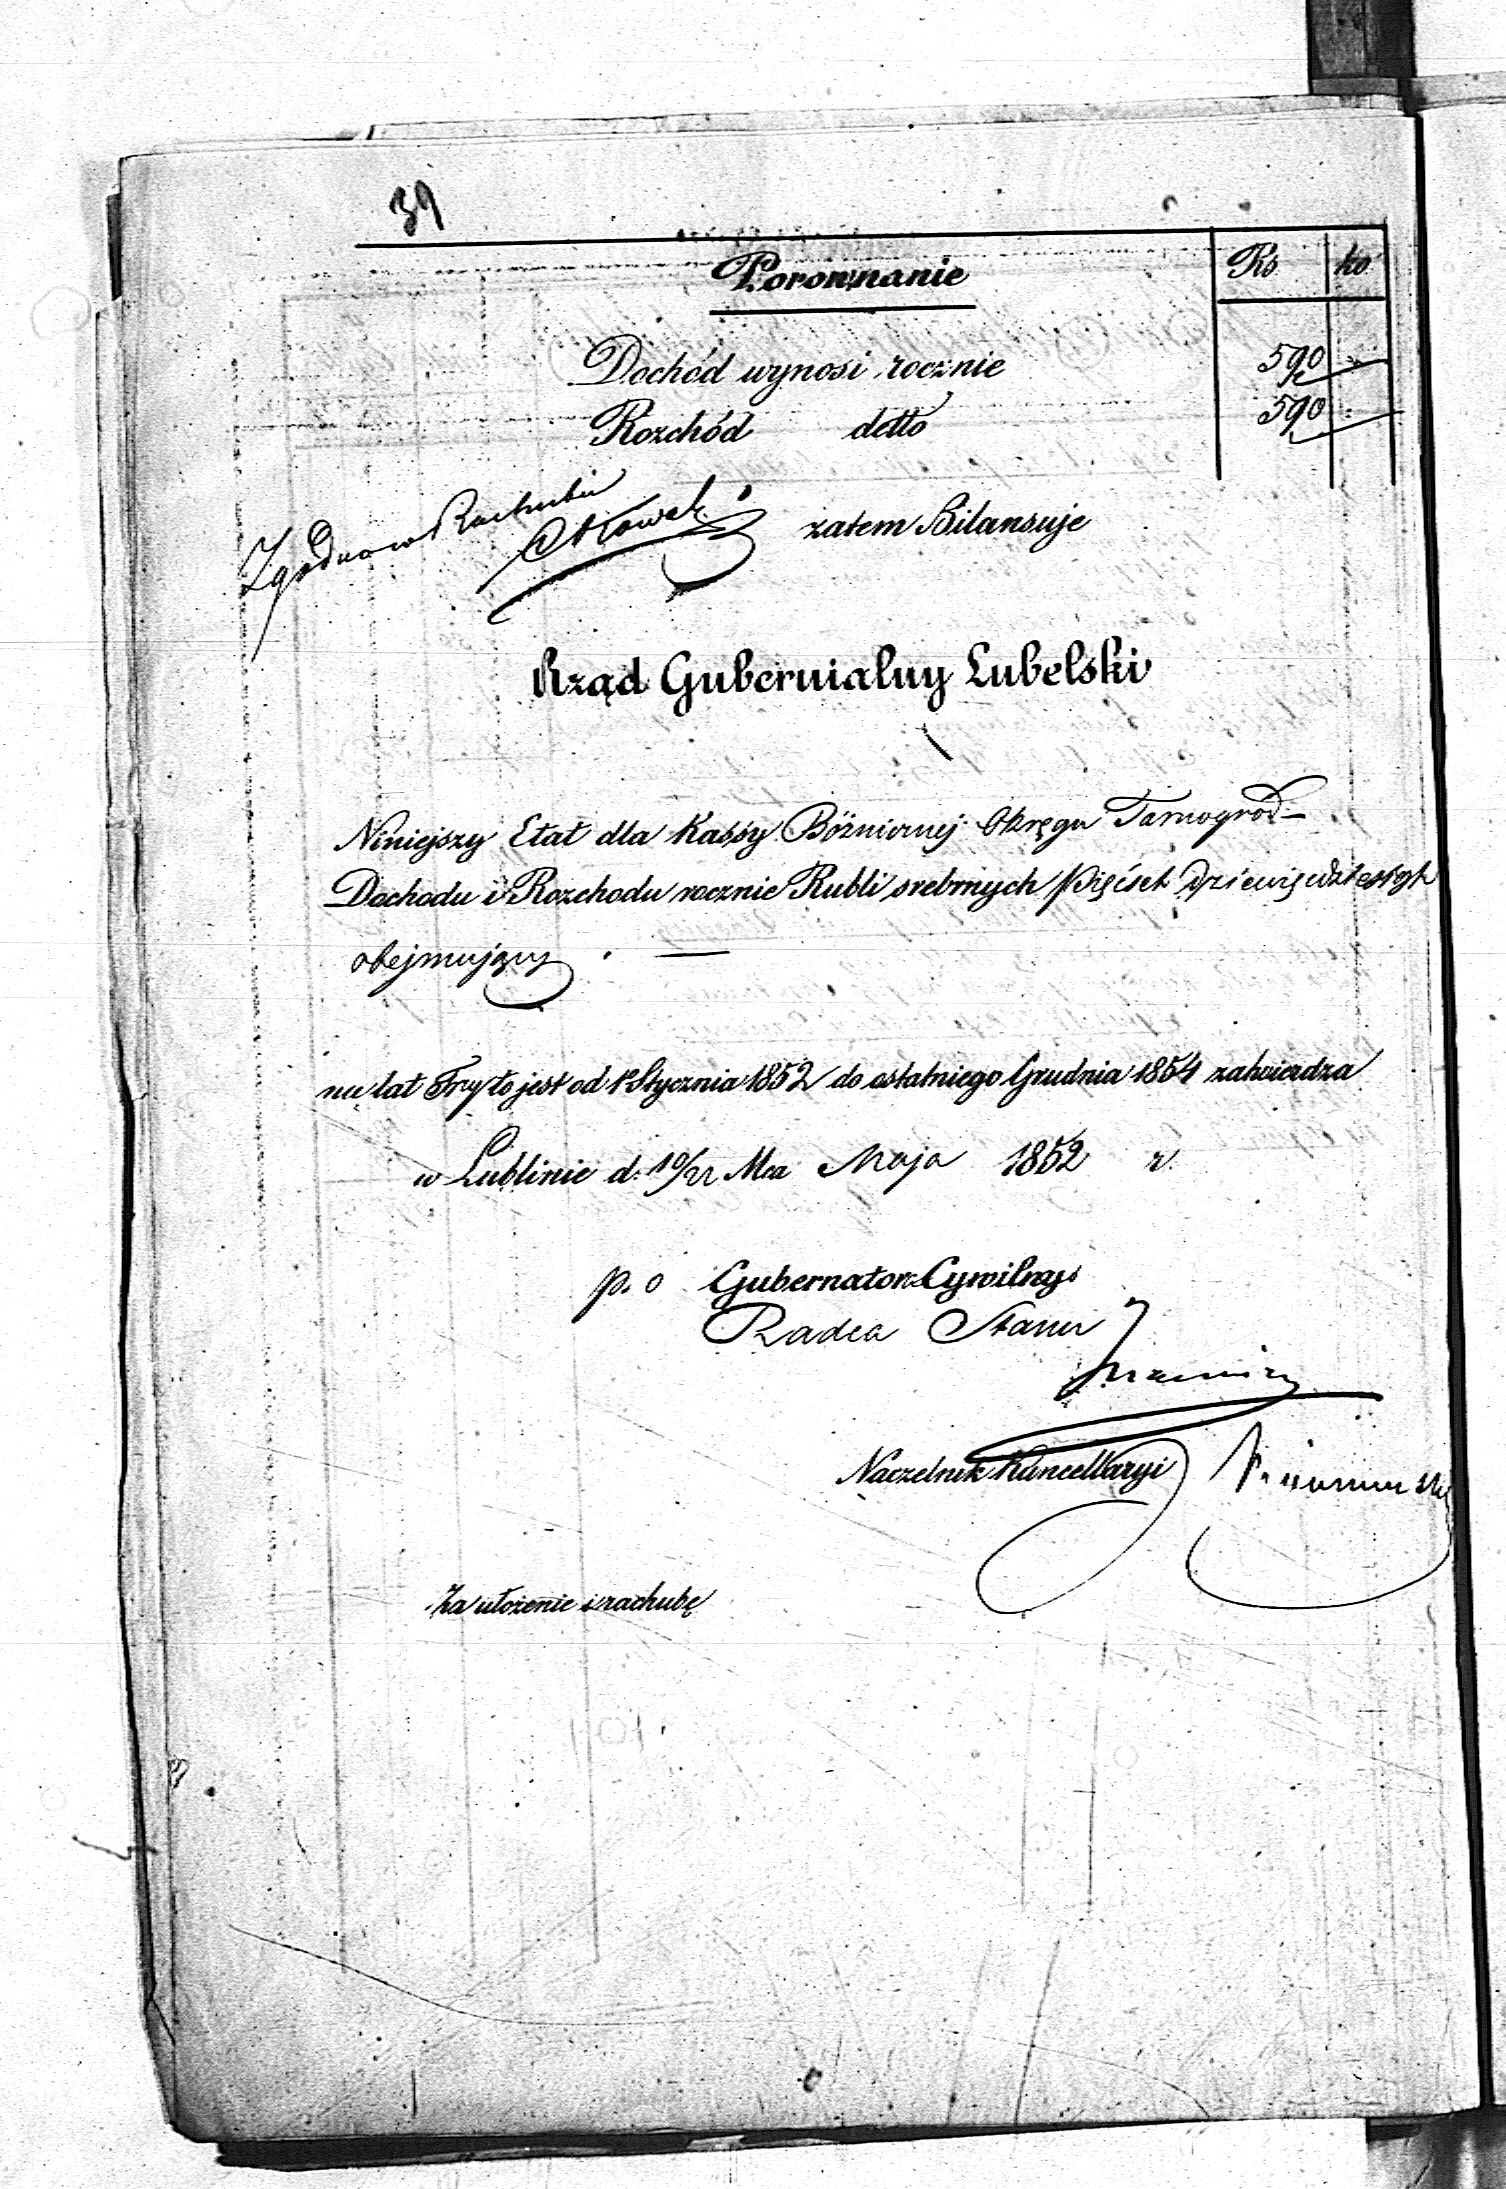 39
Porownanie Rs ko
Dochód wynosi rocznie 590 "
Rozchód detto 590 "
Zgodno w Rachubie
zatem Bilansuje
Rząd Gubernialny Lubelski
Niniejszy Etat dla Kassy Bóżnicznej Okręgu Tarnogród –
Dochodu i Rozchodu rocznie Rubli srebrnych Pięćset dziewięćdziesiąt
obejmujący . —
na lat Trzy to jest od 1º Stycznia 1852 do ostatniego Grudnia 1854 zatwierdza
w Lublinie d. 10/22 Mca Maja 1852 r.
p. o Gubernator Cywilny
Radca Stanu
Naczelnik Kancellaryi
Za ułożenie i rachubę